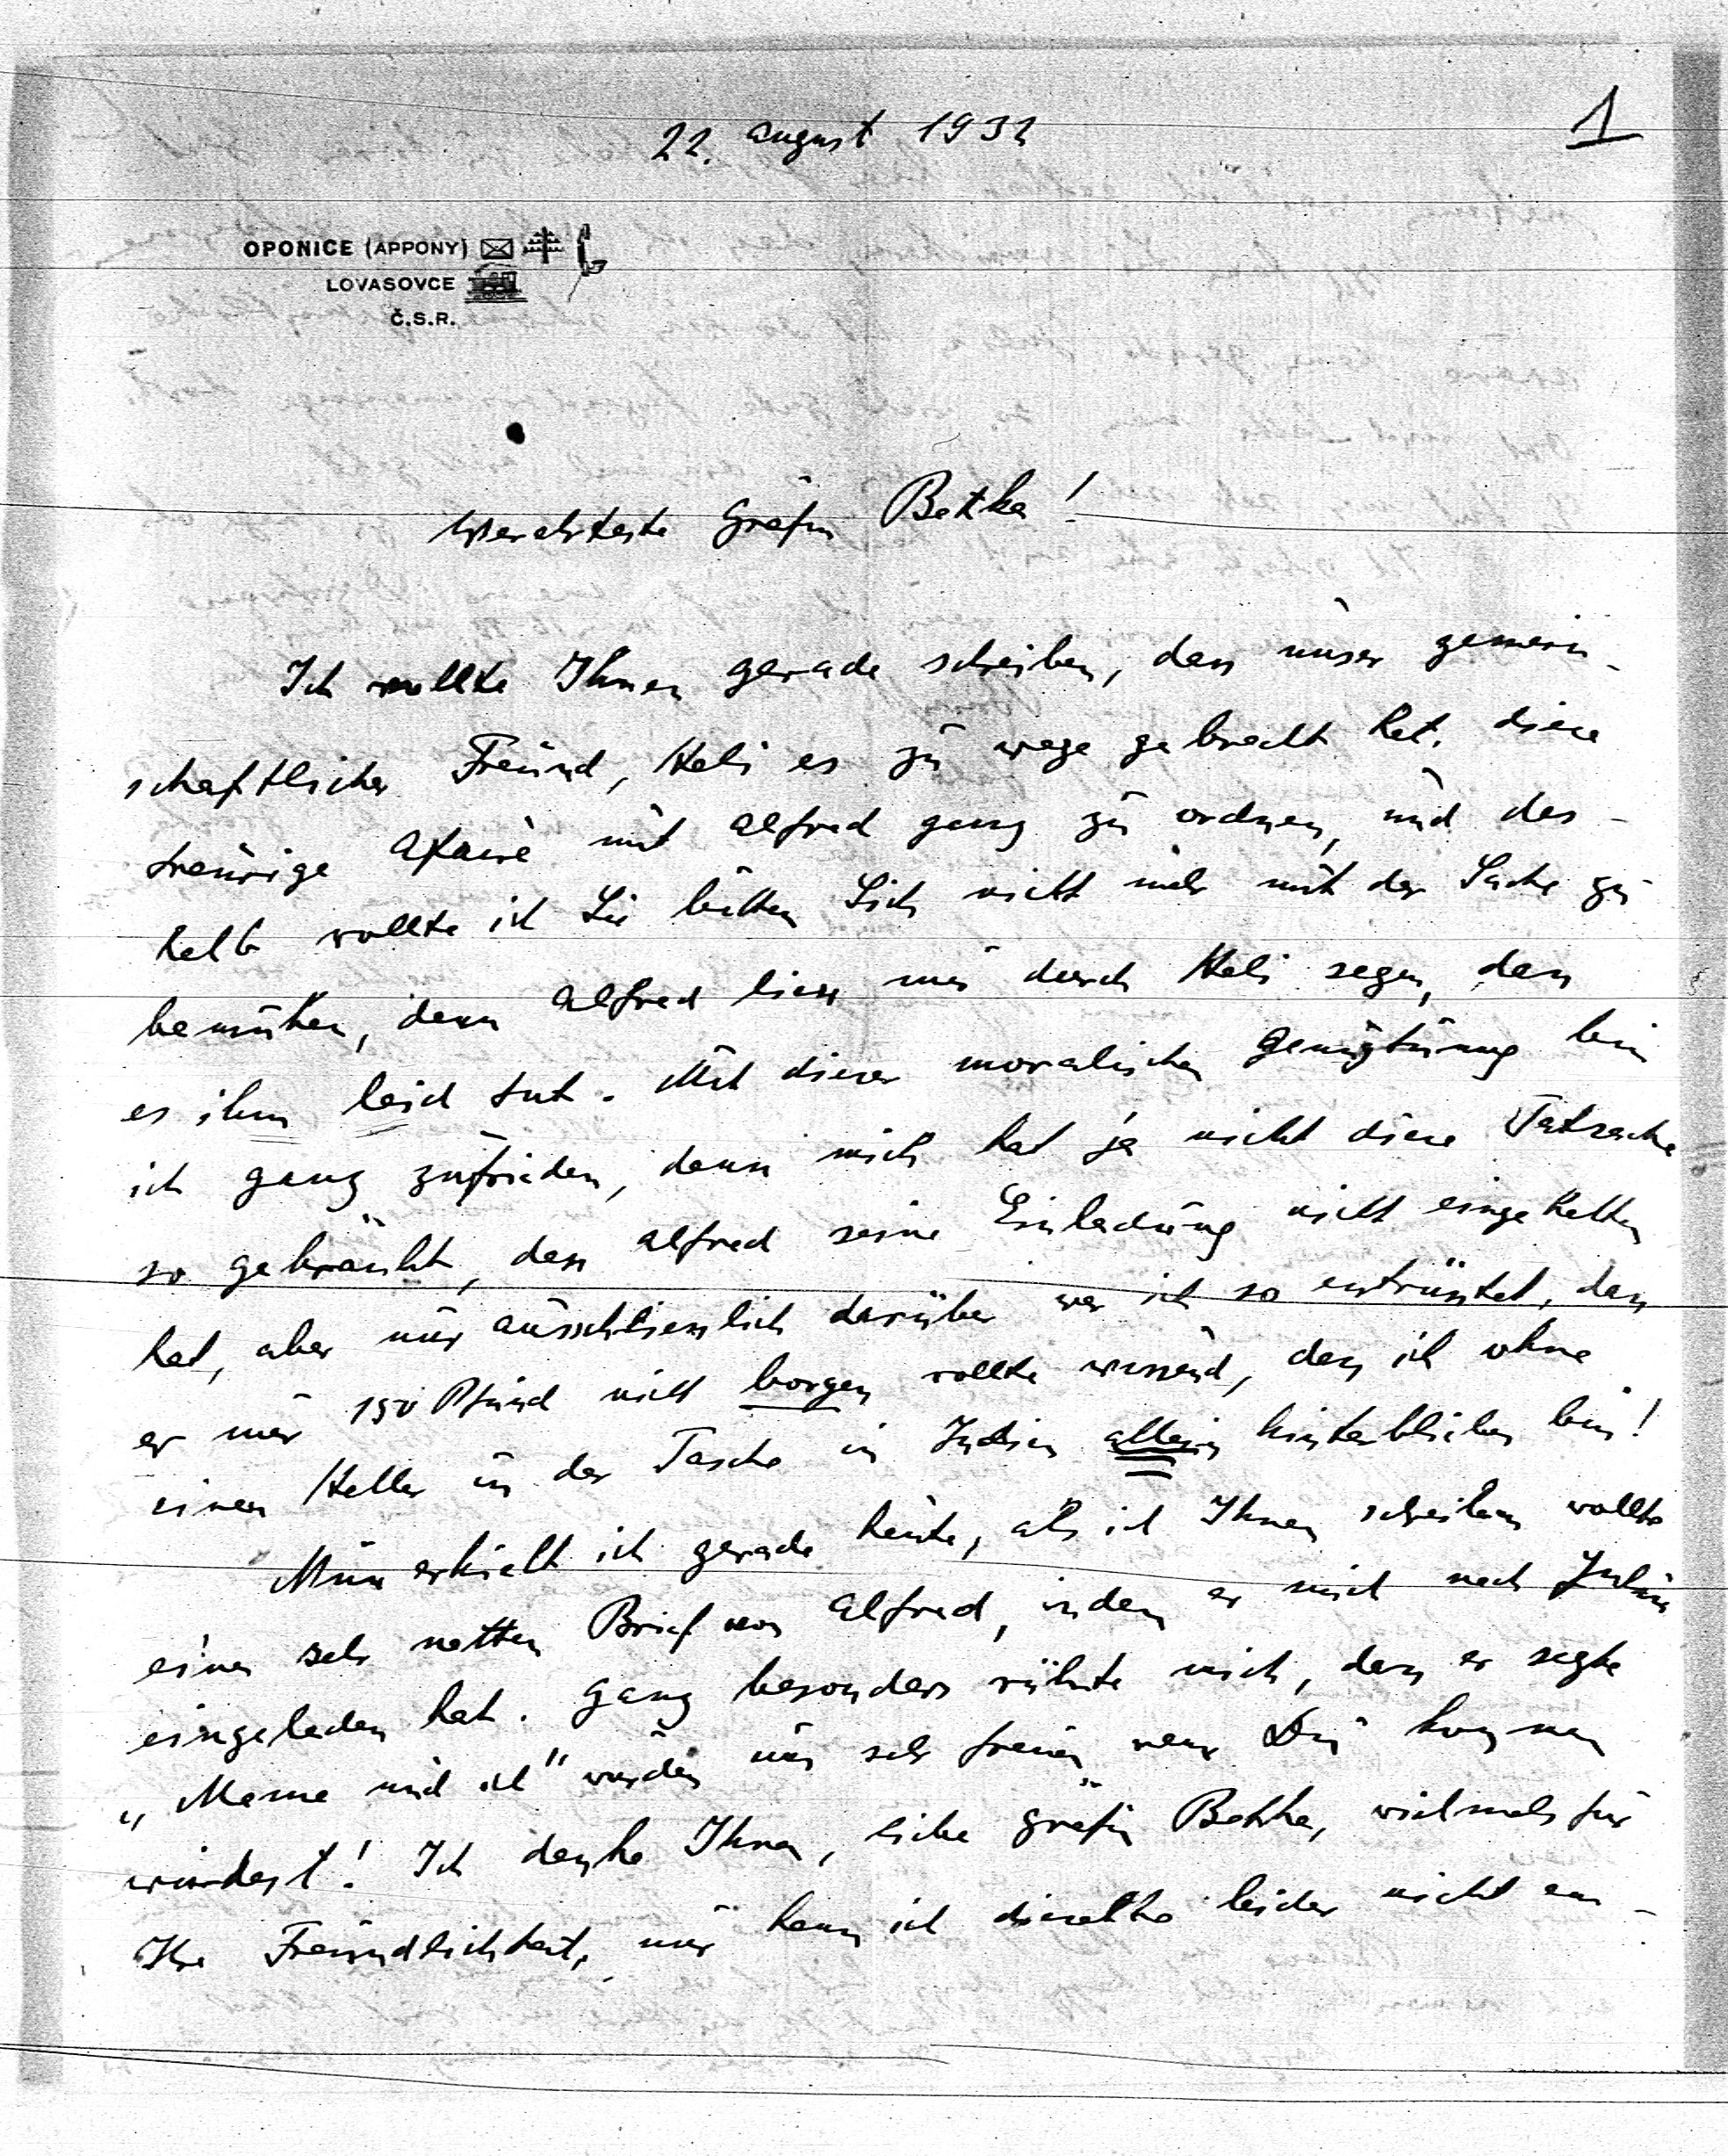 1
22. August 1932
OPONICE (APPONY)
LOVASOVCE
Č.S.R.
Gräfin Betka!
Ich wollte Ihnen gerade schreiben, dass unser gemein-
schaftlicher Freund, Hali es zu wege gebracht hat, diese
traurige Afaire mit Alfred ganz zu ordnen, und des-
halb wollte ich Sie bitten Sich nicht mehr mit der Sache zu
bemühen, denn Alfred liess mir durch Hali sagen, dass
es ihm leid tut. Mit dieser moralischen Genugtuung bin
ich ganz zufrieden, denn mich hat ja nicht diese Tatsache
so gekränkt, dass Alfred seine Einladung nicht eingehalten
hat, aber nur ausschliesslich darüber war ich so entrüstet, dass
er mir 150 Pfund nicht borgen wollte wissend, dass ich ohne
einen Heller in der Tasche in Indien allein hinterblieben bin!
Nun erhielt ich gerade heute, als ich Ihnen schreiben wollte
einen sehr netten Brief von Alfred, indem er mich nach
eingeladen hat. Ganz besonders rührte mich, dass er sagte
„Mama und ich" würden uns sehr freuen wenn Du kommen
würdest! Ich danke Ihnen, liebe Gräfin Betka, vielmals für
Ihre Freundlichkeit, nur kann ich dieselbe leider nicht an-